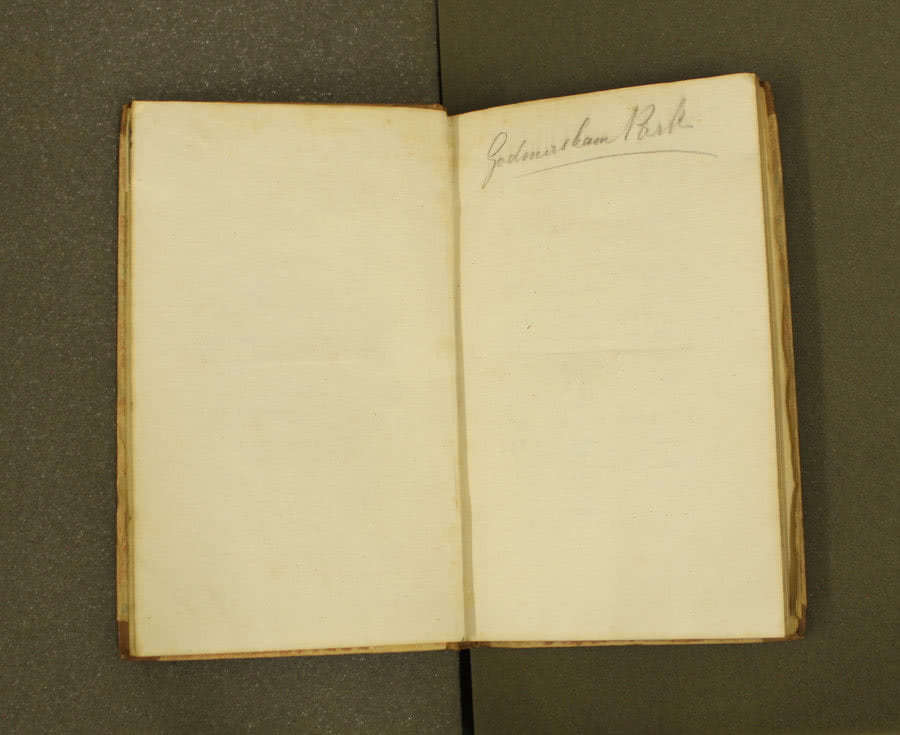 Godmersham Park